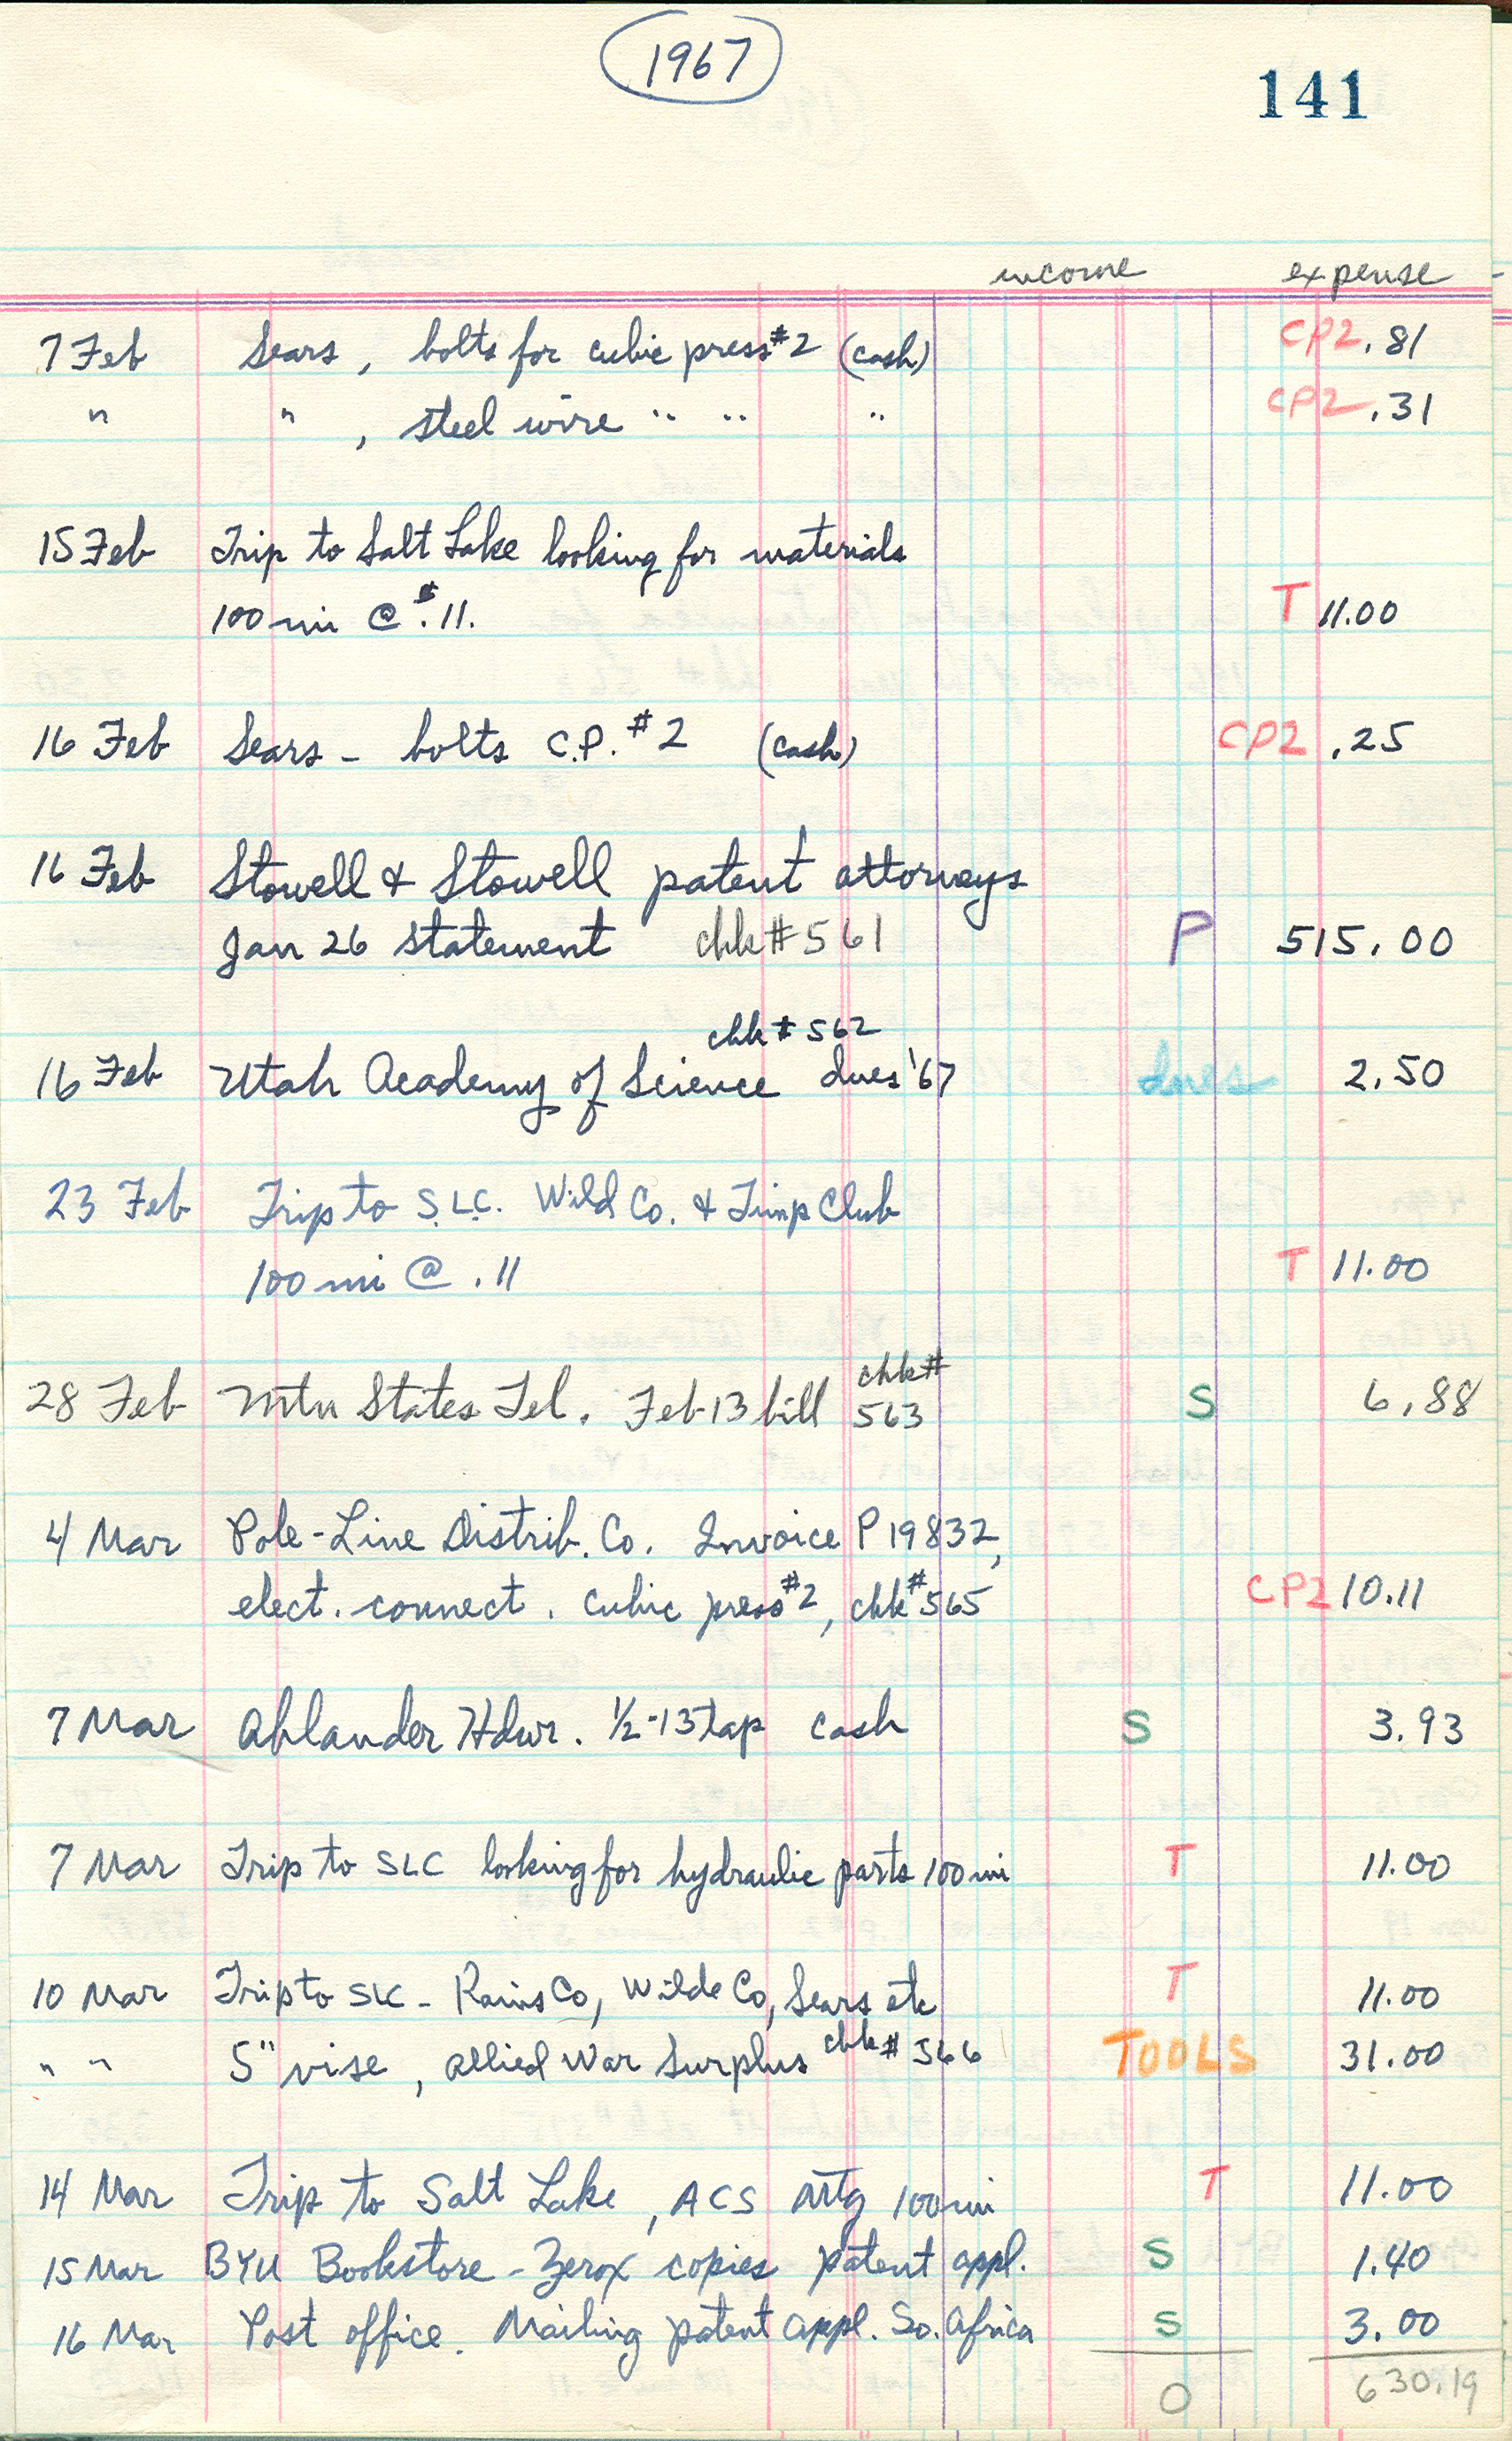 1967
141
income expense
7 Feb Sears, bolts for cubic press #2 (cash) CP2 .81
" " , steel wire " " " CP2 .31
15 Feb Trip to Salt Lake looking for materials
100 mi @ $.11. T 11.00
16 Feb Sears - bolts C.P. #2 (cash) CP2 .25
16 Feb Stowell & Stowell patent attorneys
Jan 26 statement chk #561 P 515.00
chk # 562
16 Feb Utah Academy of Science dues '67 dues 2.50
23 Feb Trip to S.L.C. Wild Co. & Timp Club
100 mi @ .11 T 11.00
chk #
28 Feb Mtn States Tel. Feb 13 bill 563 S 6.88
4 Mar Pole-Line Distrib. Co. Invoice P 19832,
elect. connect. cubic press #2, chk #565 CP2 10.11
7 Mar Ahlander Hdwr. 1/2-13 tap cash S 3.93
7 Mar Trip to SLC looking for hydraulic parts 100 mi T 11.00
10 Mar Trip to SLC - Rains Co, Wilde Co, Sears etc T 11.00
" " 5" vise, Allied War Surplus chk # 566 TOOLS 31.00
14 Mar Trip to Salt Lake, ACS Mtg 100 mi T 11.00
15 Mar BYU Bookstore - Zerox copies patent appl. S 1.40
16 Mar Post office. Mailing patent appl. So. Africa S 3.00
0 630.19